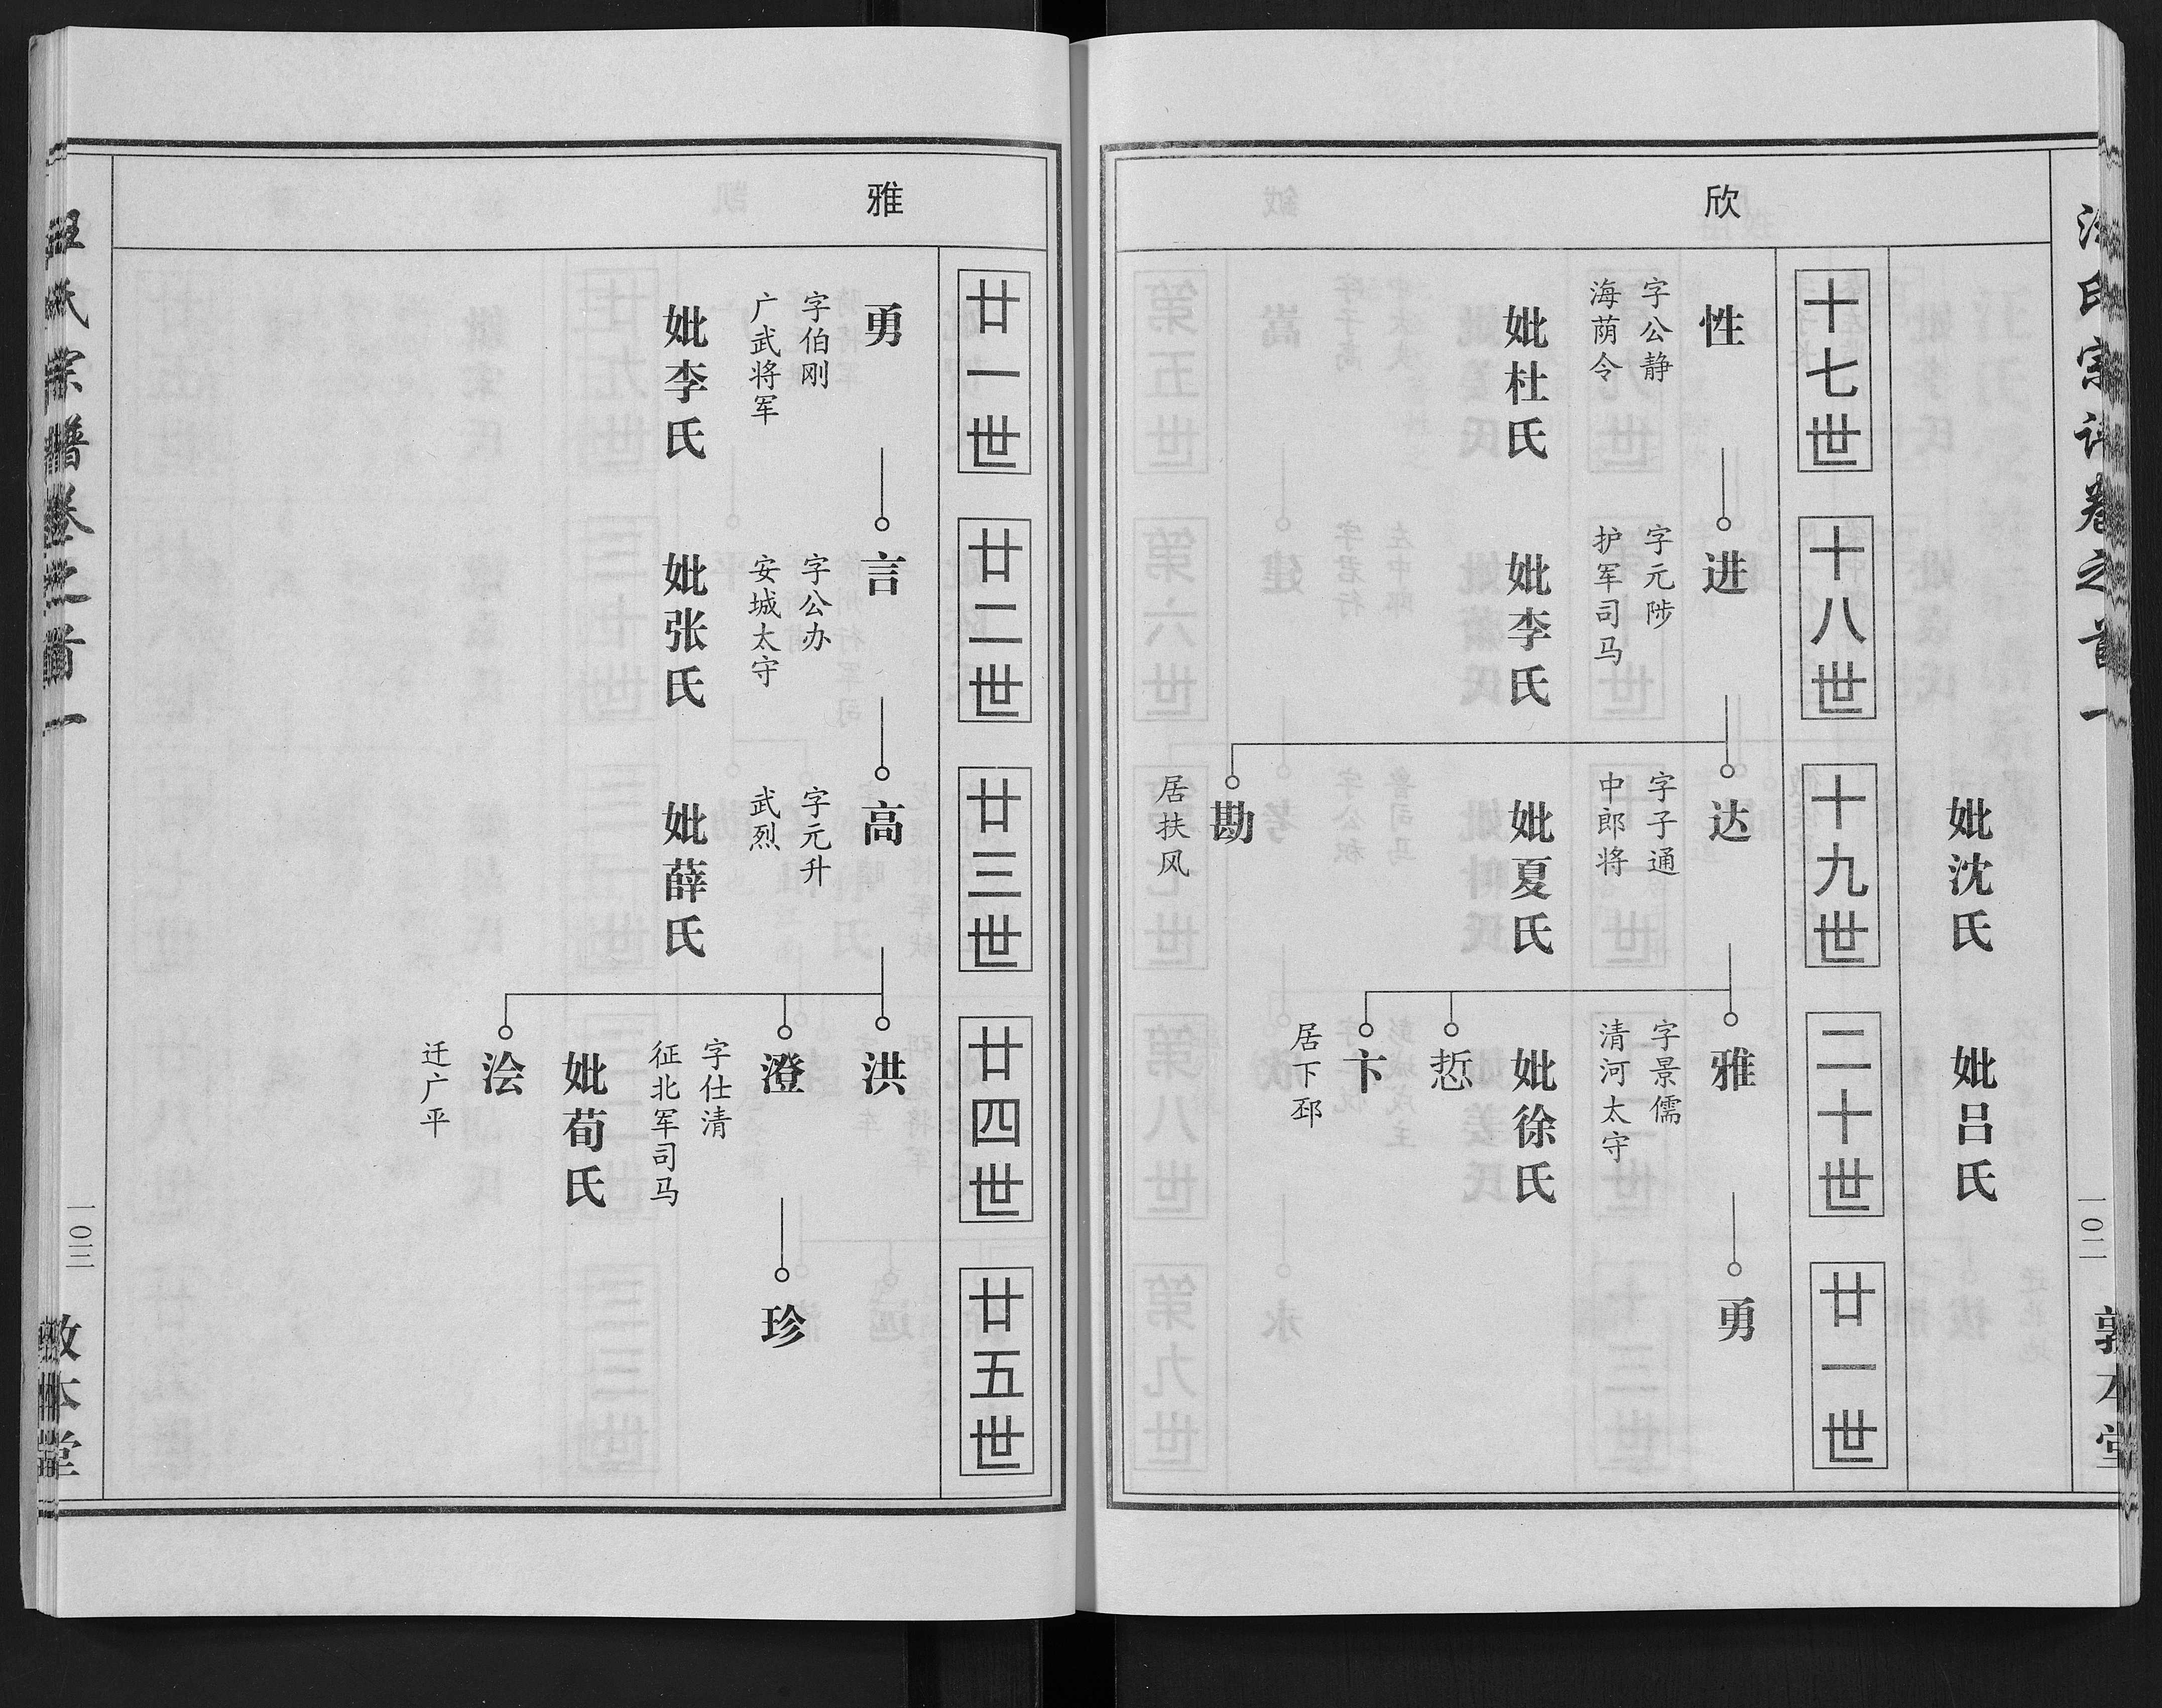 汪氏宗谱卷之首一
一〇二
敦本堂
妣沈氏
妣吕氏
欣
十七世
十八世
十九世
二十世
廿一世
性
字公静
海荫令
妣杜氏
进
字元陟
护军司马
妣李氏
达
字子通
中郎将
妣夏氏
勘
居扶风
雅
字景儒
清河太守
妣徐氏
悊
卞
居下邳
勇
雅
廿一世
廿二世
廿三世
廿四世
廿五世
勇
字伯刚
广武将军
妣李氏
言
字公办
安城太守
妣张氏
高
字元升
武烈
妣薛氏
洪
澄
字仕清
征北军司马
妣荀氏
浍
迁广平
珍
汪氏宗谱卷之首一
一〇三
敦本堂